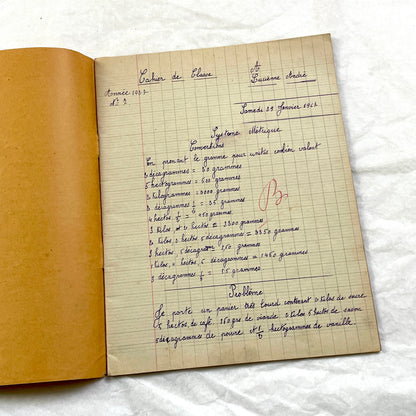 Cahier de Classe
A
Lucienne André
Année 1937
N° 2
Samedi 29 Janvier
Système Métrique
Conversions
En prenant le gramme pour unité combien valent
décagrammes = 50 grammes
5 hectogrammes = 500 grammes
kilogrammes = 3000 grammes
décagrammes 1/2 = 35 grammes
4 hectos, 1/2 = 450 grammes
3 kilos, 2 hectos = grammes
kilos, hectos 5 décagrammes = grammes
hectos, 5 décagrammes 250 grammes
kilos, hectos, 5 décagrammes = 1450 grammes
décagrammes 1/2 = 15 grammes
B
Problème
Je porte un panier très lourd contenant kilos de sucre
5 hectos de café, 250 gr de viande 2 kilos 5 hectos de
5 décagrammes de poivre et 1/2 hectogrammes de vanille.